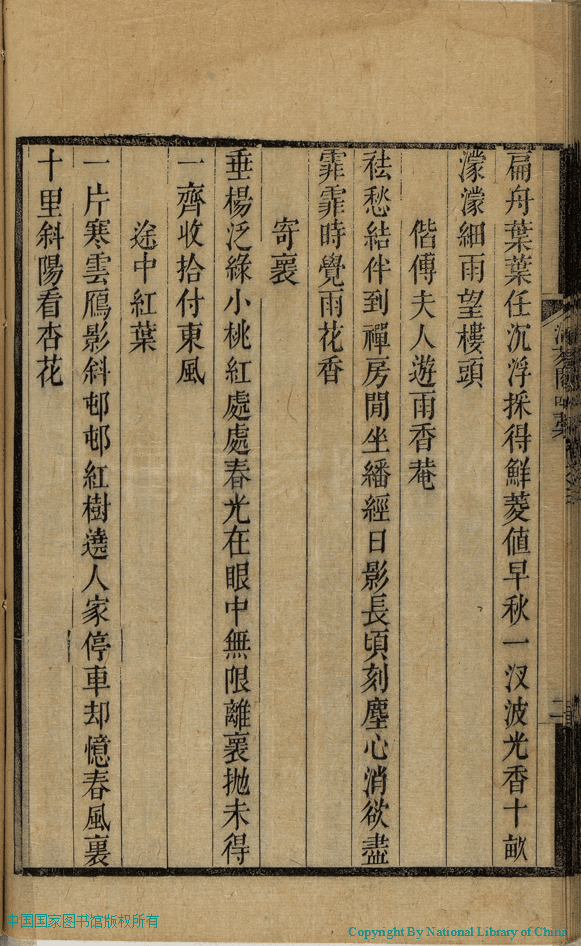 扁舟葉葉任沉浮採得鮮菱值早秋一汊波光香十畝
濛濛細雨望樓頭
偕傅夫人遊雨香菴
祛愁結伴到禪房閒坐繙經日影長頃刻塵心消欲盡
霏霏時覺雨花香
寄褱
垂楊泛綠小桃紅處處春光在眼中無限離褱拋未得
一齊收拾付東風
途中紅葉
一片寒雲鴈影斜邨邨紅樹遶人家停車却憶春風裏
十里斜陽看杏花
中国国家图书馆版权所有
Copyright By National Library of China